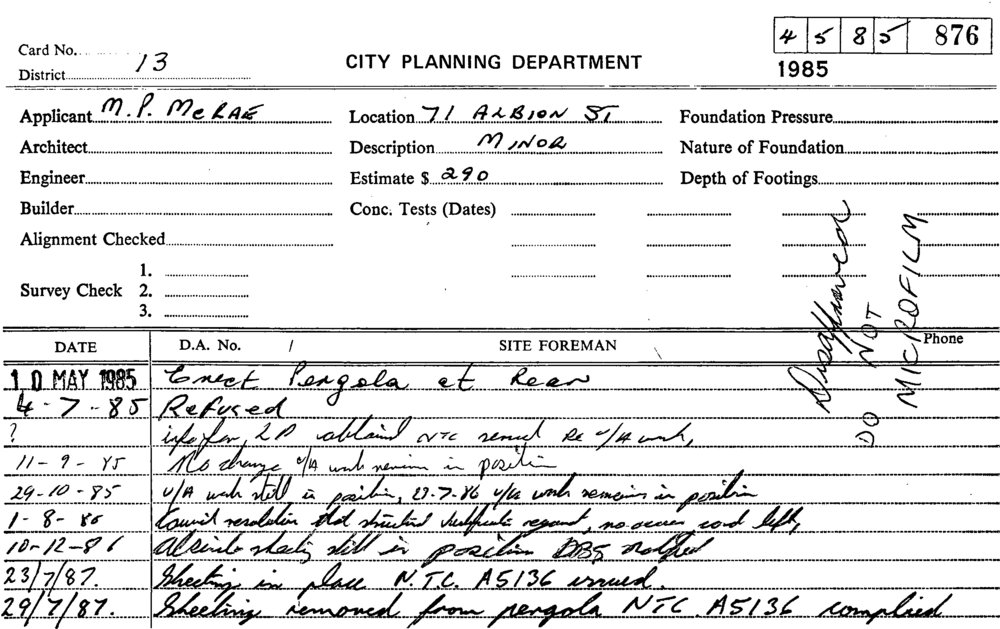 4 5 8 5 876
Card No.
District 13
CITY PLANNING DEPARTMENT
1985
Applicant M. P. McRAE
Location 71 ALBION ST
Foundation Pressure
Architect
Description MINOR
Nature of Foundation
Engineer
Estimate $ 290
Depth of Footings
Builder
Conc. Tests (Dates)
Alignment Checked
Survey Check
1.
2.
3.
Disapproved
DO NOT
MICROFILM
DATE
D.A. No. /
SITE FOREMAN
Phone
10 MAY 1985 Erect Pergola at Rear
4-7-85 Refused
? NTC Re u/A work,
11-9-85 No change u/A work remains in position
29-10-85 u/A work still in position, 23-7-86 u/A work remains in position
1-8-86 Council resolution that structural certificate no access card left,
10-12-86 sheeting still in position DBS notified
23/7/87. Sheeting in place N.T.C. A5136 issued.
29/7/87. Sheeting removed from pergola NTC A5136 complied